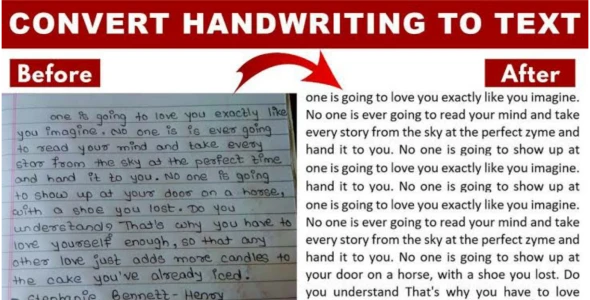 CONVERT HANDWRITING TO TEXT
Before
After
one is going to love you exactly like
you imagine. No one is is ever going
to read your mind and take every
star from the sky at the perfect time
and hand it to you. No one is going
to show up at your door on a horse,
with a shoe you lost. Do you
understand? That's why you have to
love yourself enough, so that any
other love just adds more candles to
the cake you've already iced.
- Stephanie Bennett-Henry
one is going to love you exactly like you imagine.
No one is ever going to read your mind and take
every story from the sky at the perfect zyme and
hand it to you. No one is going to show up at
one is going to love you exactly like you imagine.
hand it to you. No one is going to show up at
one is going to love you exactly like you imagine.
No one is ever going to read your mind and take
every story from the sky at the perfect zyme and
hand it to you. No one is going to show up at
your door on a horse, with a shoe you lost. Do
you understand That's why you have to love